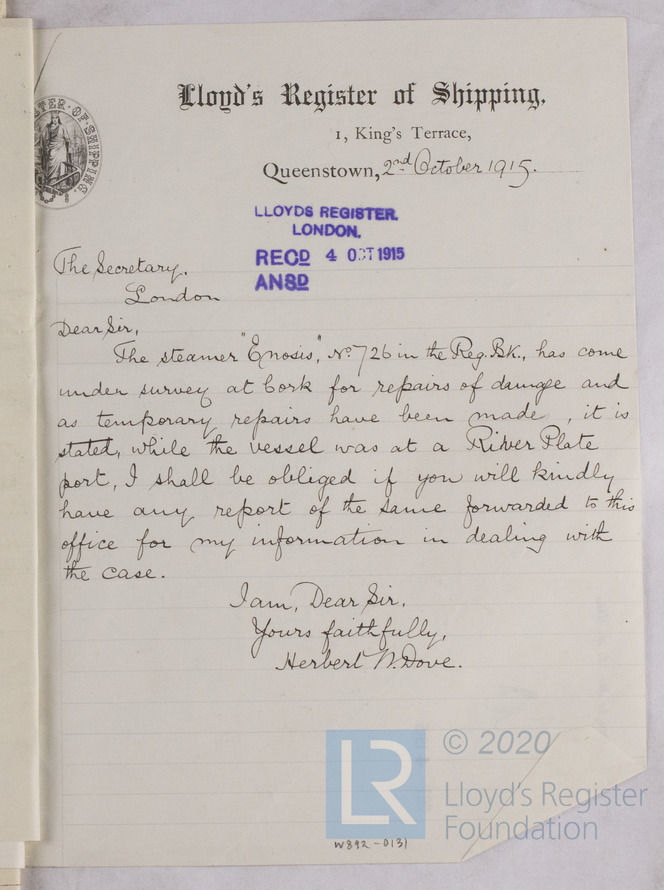 Lloyd's Register of Shipping.
1, King's Terrace,
Queenstown, 2nd October 1915.
LLOYDS REGISTER.
LONDON.
RECD 4 OCT 1915
ANSD
The Secretary.
London
Dear Sir,
The steamer "Enosis", No. 726 in the Reg. Bk., has come
under survey at Cork for repairs of damage and
as temporary repairs have been made, it is
stated, while the vessel was at a River Plate
port, I shall be obliged if you will kindly
have any report of the same forwarded to this
office for my information in dealing with
the case.
I am, Dear Sir,
Yours faithfully,
Herbert W. Dove.
© 2020
LR
Lloyd's Register
Foundation
W892-0131